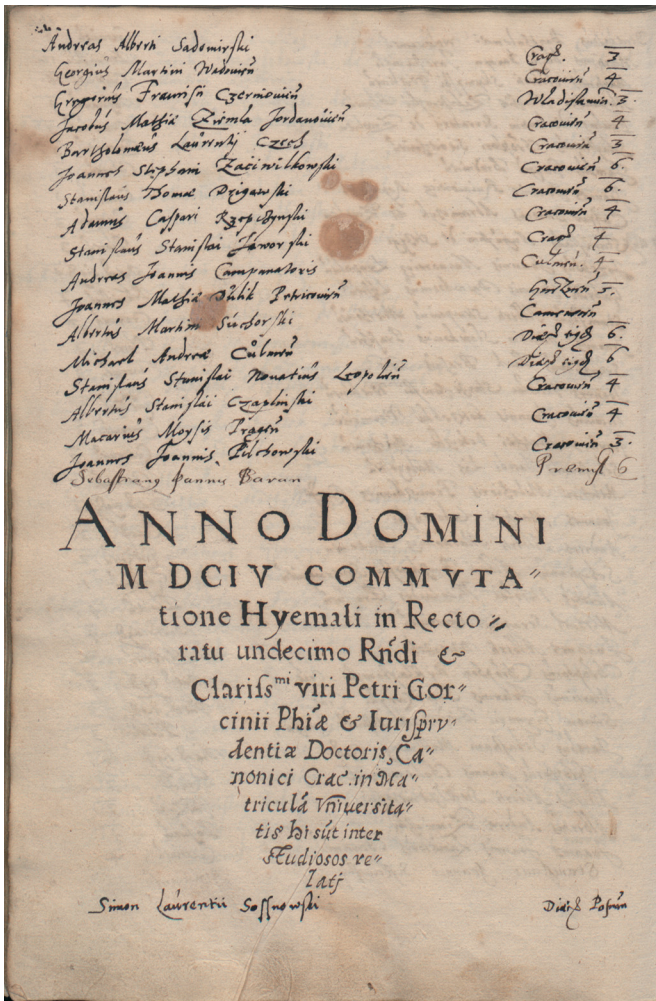 Andreas Alberti Sadomirski Crac. 3
Georgius Martini Wadovien̄ Cracovien̄ 4
Gregorius Czerniovien̄ Wladislavien̄ 3.
Jacobus Mathiæ Ziemla Jordanovien̄ Cracovien̄ 4
Bartholomæus Laurentij Czech Cracovien̄ 3
Joannes Stephani Cracovien̄ 6.
Stanislaus Thomæ Dzigawski Cracovien̄ 6.
Adamus Caspari Cracovien̄ 4
Stanislaus Stanislai Jaworski Crac. 4
Andreas Joannis Campanatoris Culmen̄. 4
Joannes Mathiæ Petricovien̄ 3.
Albertus Martini Suchorski
Michael Andreæ Culmen̄ 6.
Stanislaus Stanislai Novatius Leopolien̄ 6
Albertus Stanislai Czaplinski Cracovien̄ 4
Macarius Moysis Pragen̄ Cracovien̄ 4
Joannes Joannis Pilchowski Cracovien̄ 3.
Sebastianus Joannis Baran Præmisl 6
ANNO DOMINI
MDCIV COMMVTA〃
tione Hyemali in Recto〃
ratu undecimo Rn̄di &
Clariss^mi viri Petri Gor〃
cinii Phiæ & Iurisprv〃
dentiæ Doctoris, Ca〃
nonici Crac. in Ma〃
triculā Vn̄iuersita〃
tis hi sūt inter
studiosos re〃
latj
Simon Laurentii Sossnowski Diæc. Posnan̄